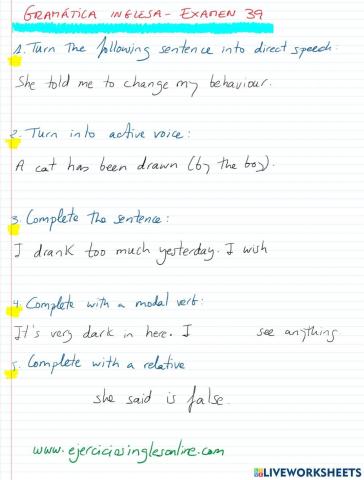 GRAMÁTICA INGLESA - EXAMEN 39
1. Turn the following sentence into direct speech:
She told me to change my behaviour.
2. Turn into active voice:
A cat has been drawn (by the boy).
3. Complete the sentence:
I drank too much yesterday. I wish
4. Complete with a modal verb:
It's very dark in here. I see anything
5. Complete with a relative
she said is false.
www.ejerciciosinglesonline.com
LIVEWORKSHEETS